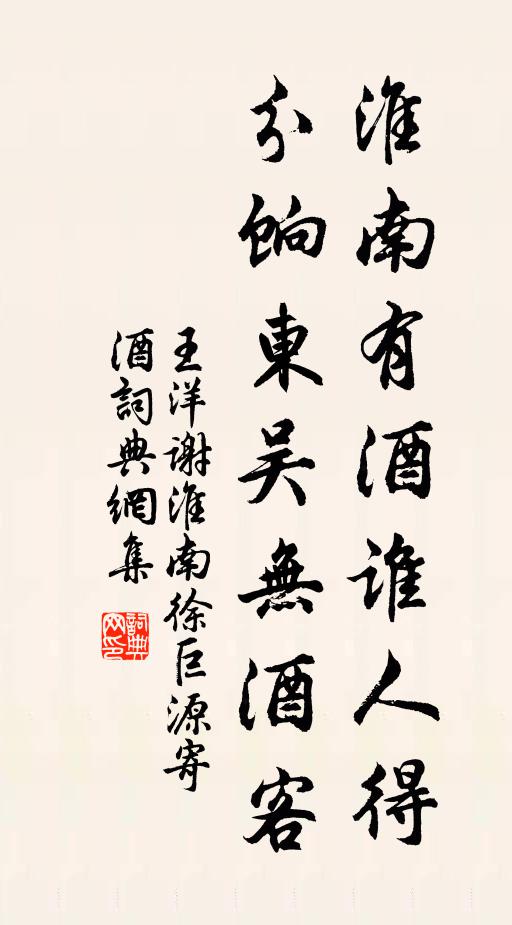 淮南有酒誰人得
分餉東吴無酒客
王洋謝淮南徐巨源寄
酒詞典網集
詞典网印